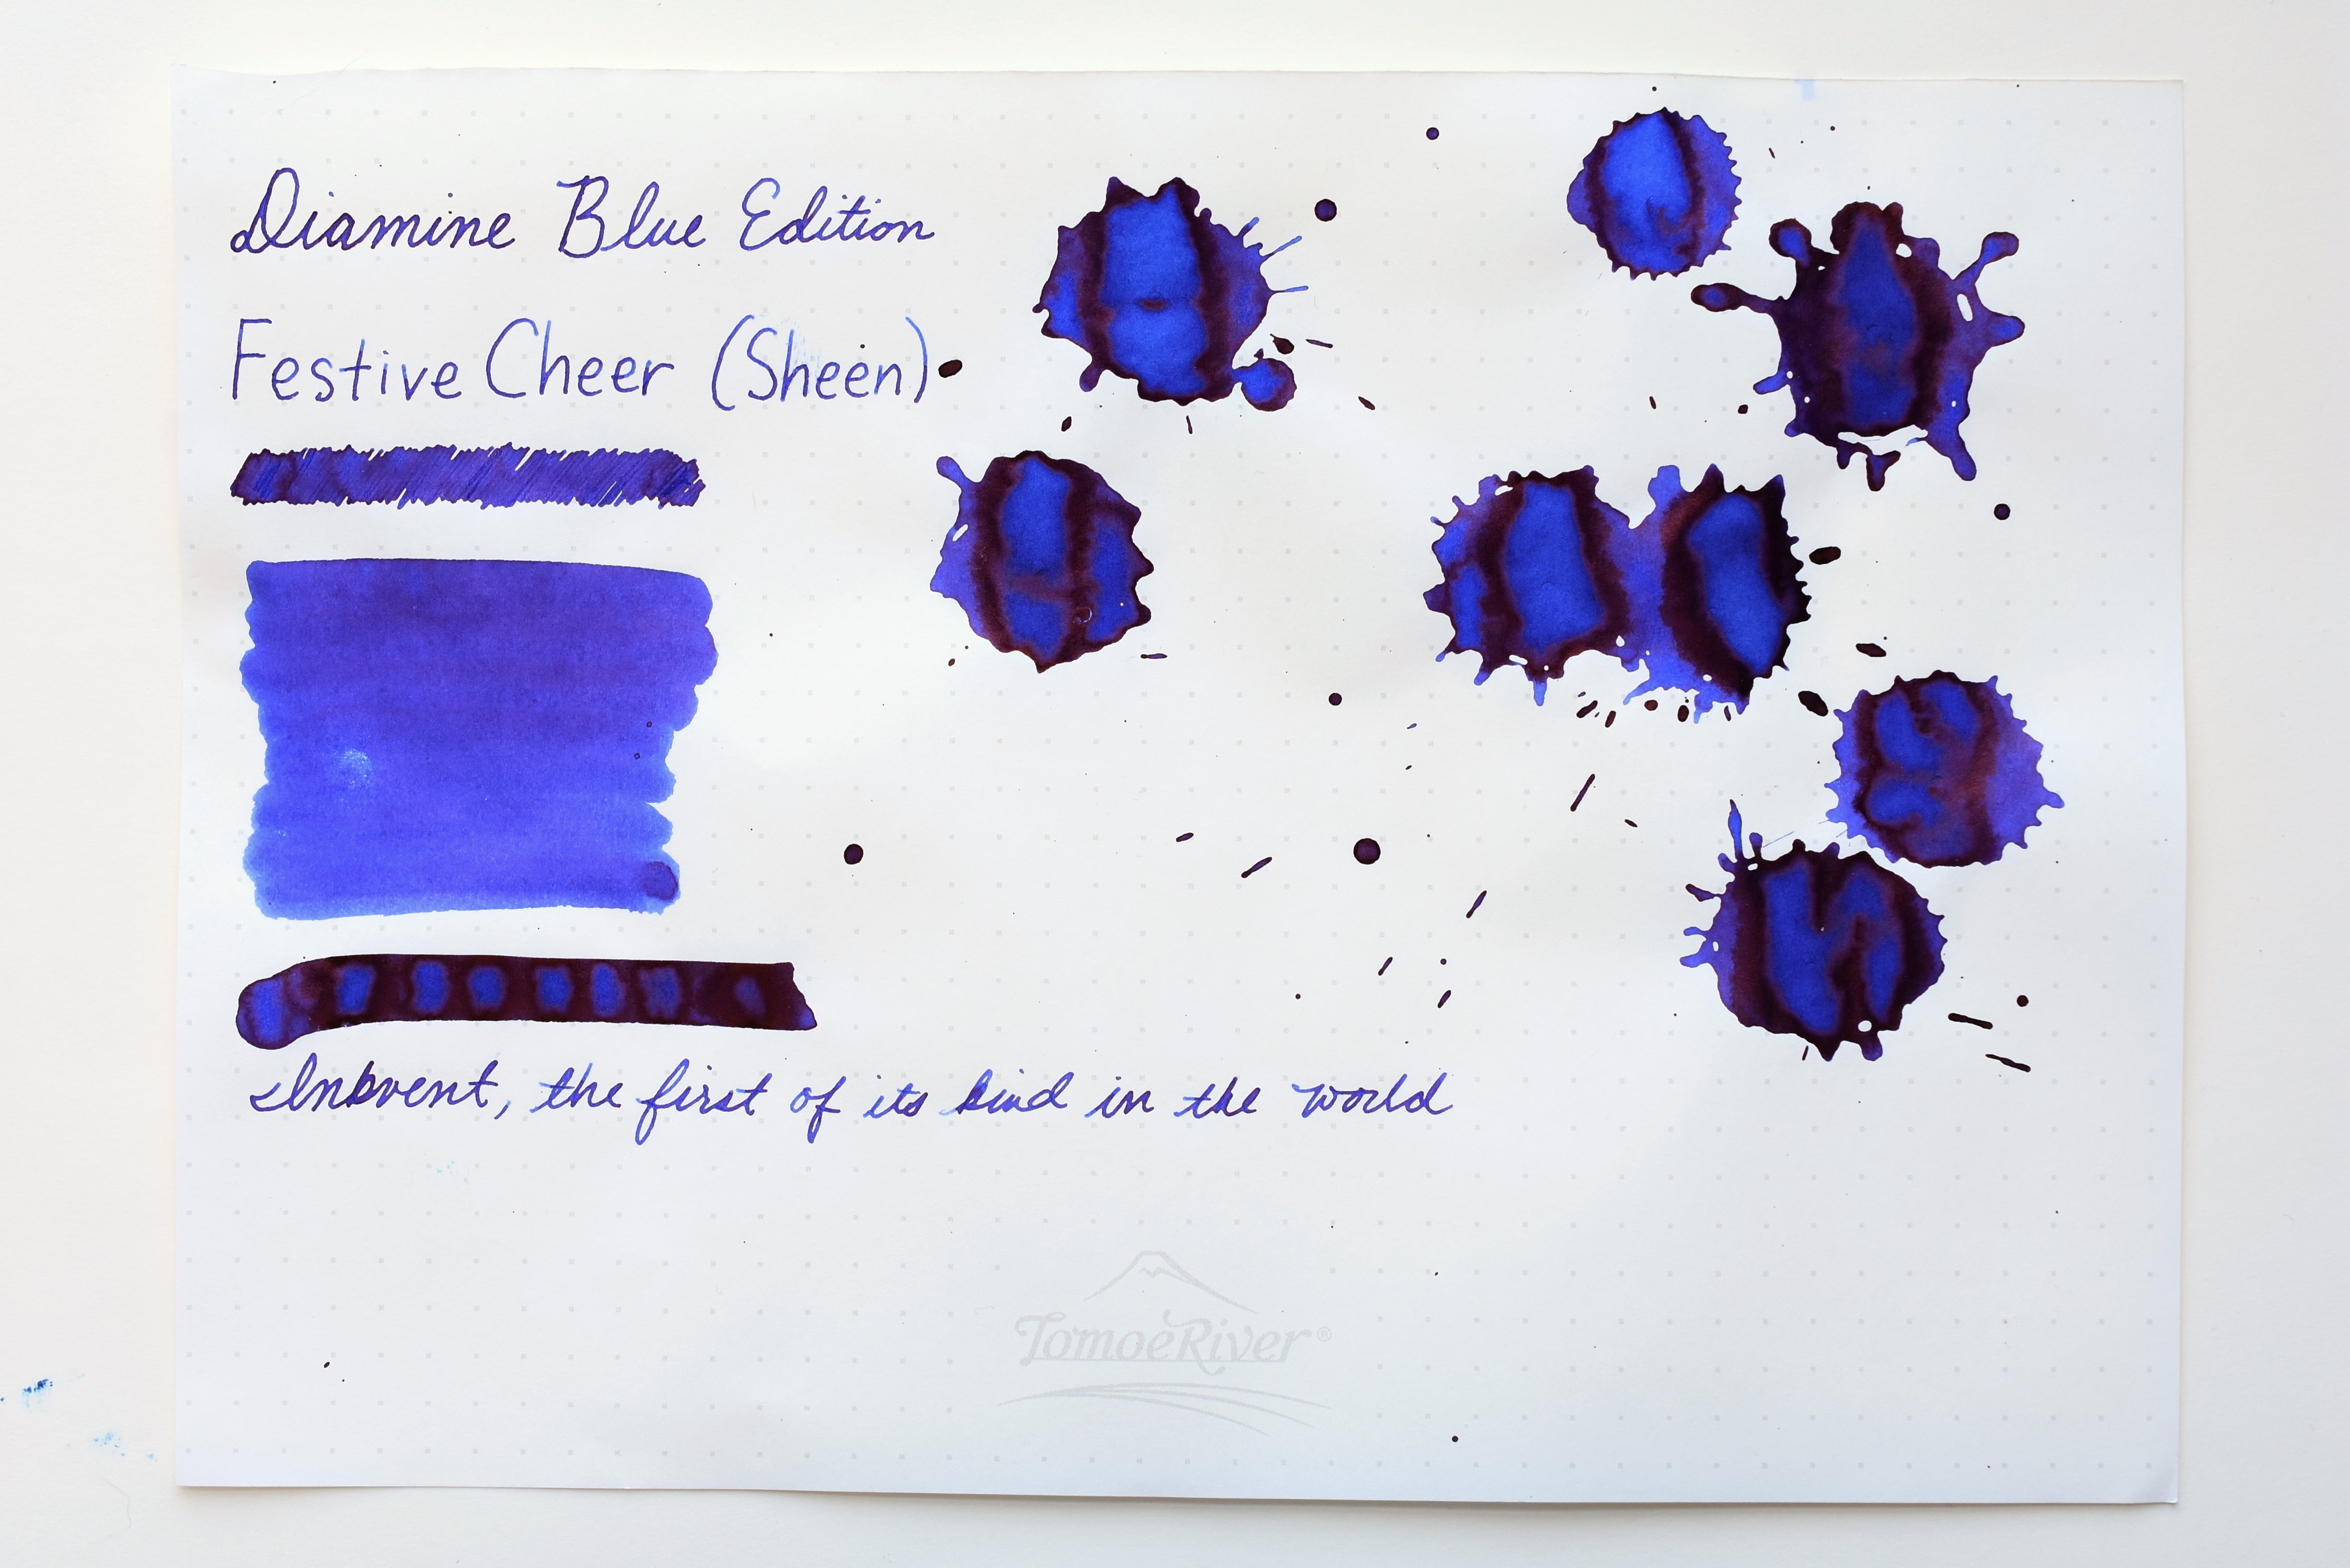 Diamine Blue Edition
Festive Cheer (Sheen)
Inkvent, the first of its kind in the world
TomoeRiver®